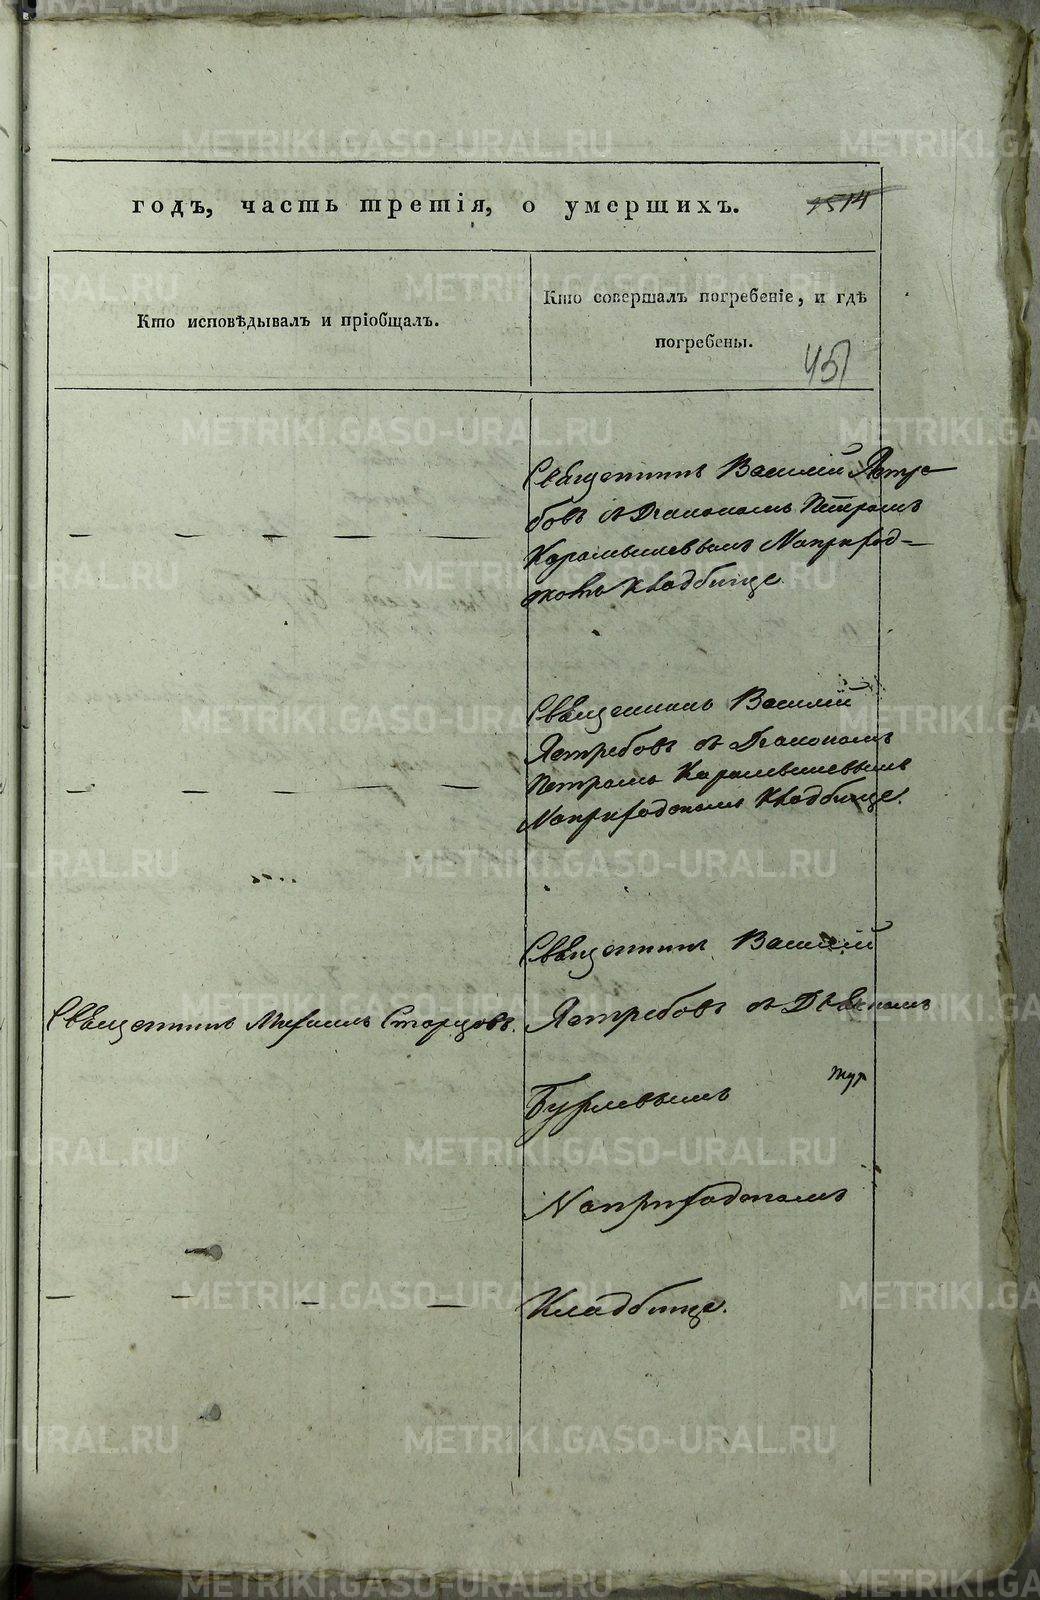 годъ, часть третія, о умершихъ.
1514
Кто исповѣдывалъ и пріобщалъ.
Кто совершалъ погребеніе, и гдѣ
погребены.
451
Священникъ Василій Ястре-
бовъ съ Діакономъ Петромъ
Карамышевымъ Наприход-
скомъ кладбище
Священникъ Василій
Ястребовъ съ Діакономъ
Петромъ Карамышевымъ
Наприходскомъ Кладбище.
Священникъ Василій
Священникъ Михаилъ Старцовъ.
Ястребовъ съ
Бурлевымъ
Наприходскомъ
Кладбище.
METRIKI.GASO-URAL.RU